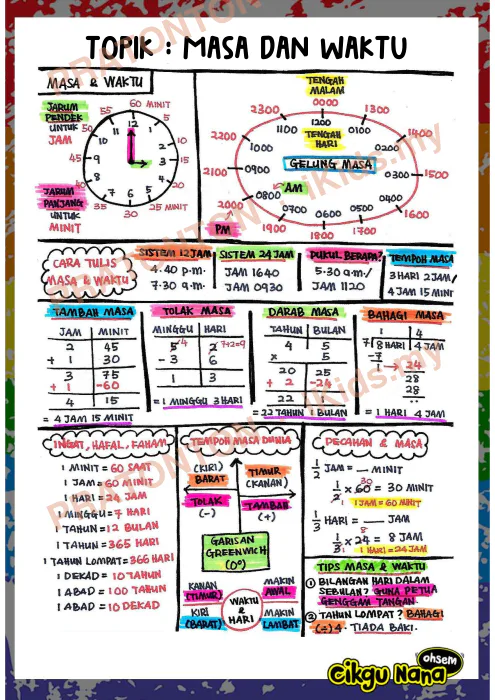 TOPIK : MASA DAN WAKTU
MASA & WAKTU
JARUM
PENDEK
UNTUK
JAM
JARUM
PANJANG
UNTUK
MINIT
60 MINIT
5
10
15
20
25 MINIT
30
35
40
45
50
55
12
1
2
3
4
5
6
7
8
9
10
11
TENGAH
MALAM
0000
1300
1400
1500
1600
1700
1800
1900
2000
2100
2200
2300
1200
0100
0200
0300
0400
0500
0600
0700
0800
0900
1000
1100
TENGAH
HARI
GELUNG MASA
AM
PM
CARA TULIS
MASA & WAKTU
SISTEM 12 JAM
4.40 p.m.
7.30 a.m.
SISTEM 24 JAM
JAM 1640
JAM 0930
PUKUL BERAPA?
5.30 a.m./
JAM 1120
TEMPOH MASA
3 HARI 2 JAM/
4 JAM 15 MINIT
TAMBAH MASA
JAM MINIT
2 45
+ 1 30
3 75
+ 1 -60
4 15
= 4 JAM 15 MINIT
TOLAK MASA
MINGGU HARI
5 4 2 7+2=9
- 3 6
1 3
= 1 MINGGU 3 HARI
DARAB MASA
TAHUN BULAN
4 5
× 5
20 25
+ 2 -24
22 1
= 22 TAHUN 1 BULAN
BAHAGI MASA
1 4
7 8 HARI 4 JAM
-7
1 → 24
28
28
..
= 1 HARI 4 JAM
INGAT, HAFAL, FAHAM
1 MINIT = 60 SAAT
1 JAM = 60 MINIT
1 HARI = 24 JAM
1 MINGGU = 7 HARI
1 TAHUN = 12 BULAN
1 TAHUN = 365 HARI
1 TAHUN LOMPAT = 366 HARI
1 DEKAD = 10 TAHUN
1 ABAD = 100 TAHUN
1 ABAD = 10 DEKAD
TEMPOH MASA DUNIA
(KIRI)
BARAT
TIMUR
(KANAN)
TOLAK
(-)
TAMBAH
(+)
GARISAN
GREENWICH
(0°)
KANAN
(TIMUR)
MAKIN
AWAL
WAKTU
&
HARI
KIRI
(BARAT)
MAKIN
LAMBAT
PECAHAN & MASA
1/2 JAM = __ MINIT
1/2 × 60 30 = 30 MINIT
1 JAM = 60 MINIT
1/3 HARI = __ JAM
1/3 × 24 8 = 8 JAM
1 HARI = 24 JAM
TIPS MASA & WAKTU
① BILANGAN HARI DALAM
SEBULAN? GUNA PETUA
GENGGAM TANGAN.
② TAHUN LOMPAT? BAHAGI
(÷) 4. TIADA BAKI.
ohsem
Cikgu Nana